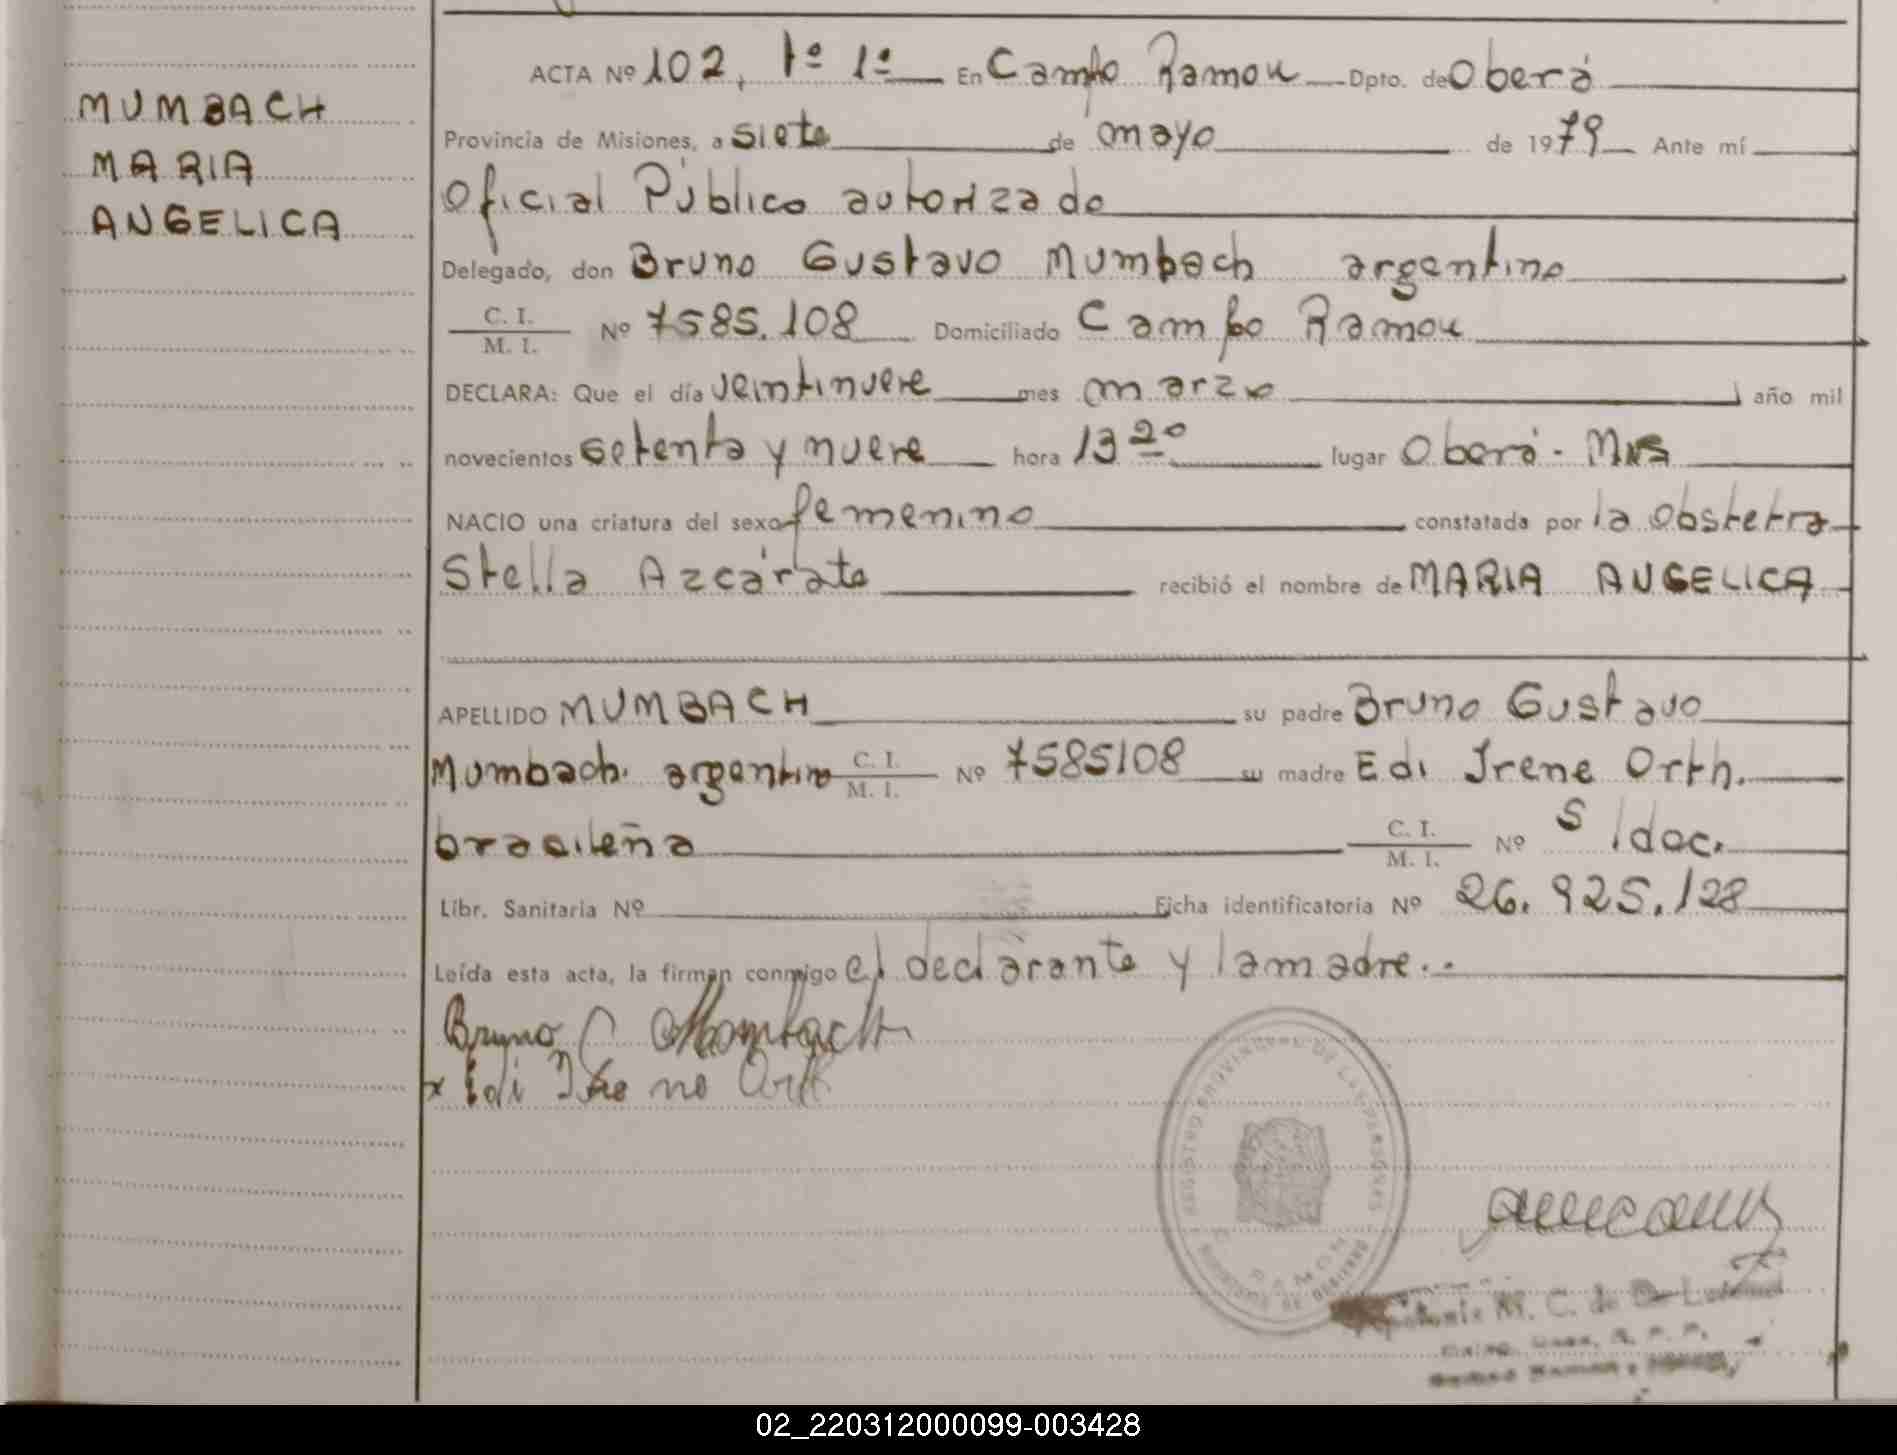 MUMBACH
MARIA
ANGELICA
ACTA Nº 102, 1º 1º En Campo Ramon Dpto. de Oberá
Provincia de Misiones, a siete de mayo de 1979 Ante mí
Oficial Público autorizado
Delegado, don Bruno Gustavo Mumbach argentino
C. I.
M. I. Nº 7585.108 Domiciliado Campo Ramon
DECLARA: Que el día veintinueve mes marzo año mil
novecientos setenta y nueve hora 13 20 lugar Oberá - Mns
NACIO una criatura del sexo femenino constatada por la obstetra
Stella Azcárate recibió el nombre de MARIA ANGELICA
APELLIDO MUMBACH su padre Bruno Gustavo
Mumbach. argentino C. I. M. I. Nº 7585108 su madre Edi Irene Orth.
brasileña C. I. M. I. Nº s/doc.
Libr. Sanitaria Nº Ficha identificatoria Nº 26.925.128
Leída esta acta, la firman conmigo el declarante y la madre..
Bruno G Mombach
x Edi
REGISTRO PROVINCIAL DE LAS PERSONAS
MINISTERIO DE GOBIERNO
C. RAMON
M. C. de De
02_220312000099-003428